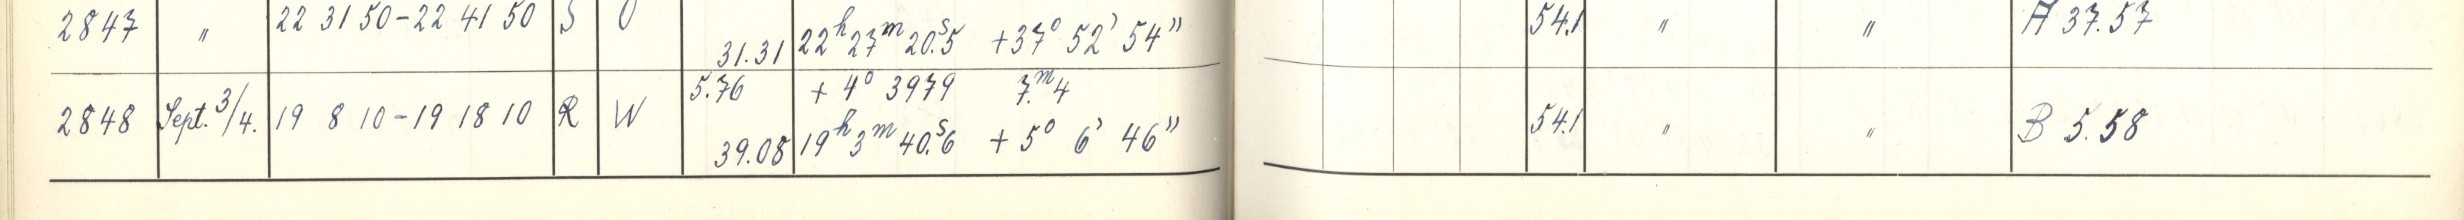 2847 " 22 31 50-22 41 50 S O 31.31 22ʰ27ᵐ20.ˢ5 +37° 52' 54" 54.1 " " A 37.57
5.76 + 4° 3979 7.ᵐ4
2848 Sept. 3/4. 19 8 10-19 18 10 R W 39.08 19ʰ3ᵐ40.ˢ6 + 5° 6' 46" 54.1 " " B 5.58